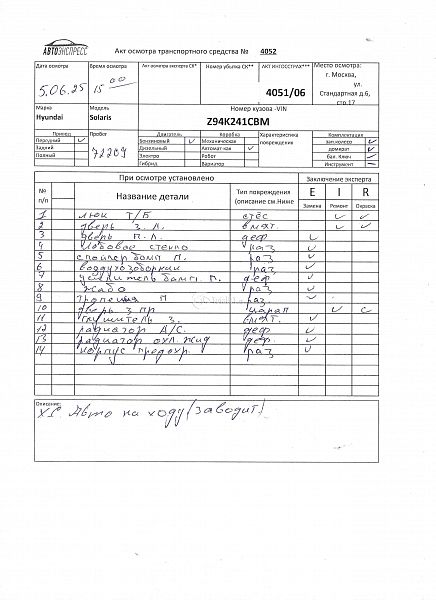 АВТОЭКСПРЕСС
Акт осмотра транспортного средства № 4052
Дата осмотра
5.06.25
Время осмотра
15 00
Акт осмотра эксперта СК*
Номер убытка СК**
АКТ ИНГОССТРАХ***
4051/06
Место осмотра:
г. Москва,
ул.
Стандартная д.6,
стр.17
Марка
Hyundai
Модель
Solaris
Номер кузова -VIN
Z94K241CBM
Привод
Передний ✓
Задний
Полный
Пробег
72209
Двигатель
Бензиновый ✓
Дизельный
Электро
Гибрид
Коробка
Механическая
Автомат-кая ✓
Робот
Вариатор
Характеристика
повреждения
Комплектация
зап.колесо ✓
домкрат ✓
бал. Ключ ✓
Инструмент –
При осмотре установлено
Заключение эксперта
№
п/п
Название детали
Тип повреждения
(описание см.Ниже
E
Замена
I
Ремонт
R
Окраска
1 люк Т/Б стёс ✓ ✓
2 дверь З. Л. вмят. ✓ ✓
3 дверь П. Л. деф ✓
4 Лобовое стекло раз ✓
5 спойлер бамп П. раз ✓
6 воздухозаборник раз ✓
7 усилитель бамп. П. деф ✓
8 Жабо раз ✓
9 П раз. ✓
10 дверь з пр царап ✓
11 глушитель З. вмят. ✓
12 радиатор А/С. деф ✓
13 радиатор охл. жид деф. ✓
14 корпус предохр. раз ✓
Описание:
Авто на ходу (заводит)